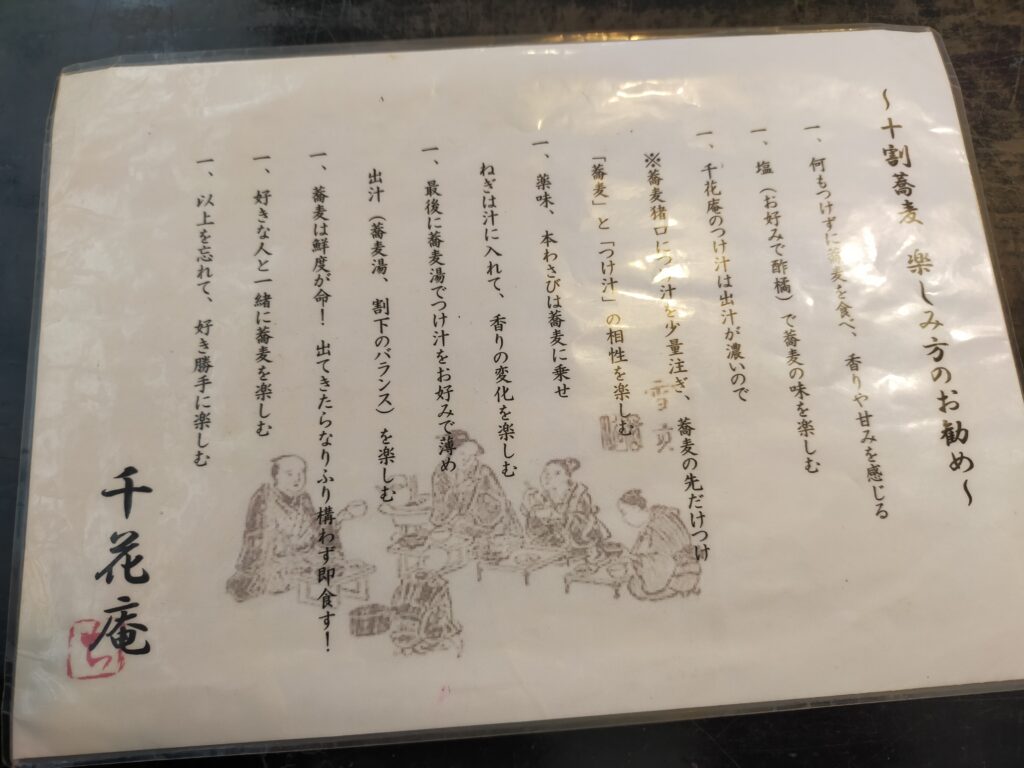 ～十割蕎麦　楽しみ方のお勧め～
一、何もつけずに蕎麦を食べ、香りや甘みを感じる
一、塩（お好みで酢橘）で蕎麦の味を楽しむ
一、千花庵のつけ汁は出汁が濃いので
※蕎麦猪口につけ汁を少量注ぎ、蕎麦の先だけつけ
「蕎麦」と「つけ汁」の相性を楽しむ
一、薬味、本わさびは蕎麦に乗せ
ねぎは汁に入れて、香りの変化を楽しむ
一、最後に蕎麦湯でつけ汁をお好みで薄め
出汁（蕎麦湯、割下のバランス）を楽しむ
一、蕎麦は鮮度が命！出てきたらなりふり構わず即食す！
一、好きな人と一緒に蕎麦を楽しむ
一、以上を忘れて、好き勝手に楽しむ
千花庵